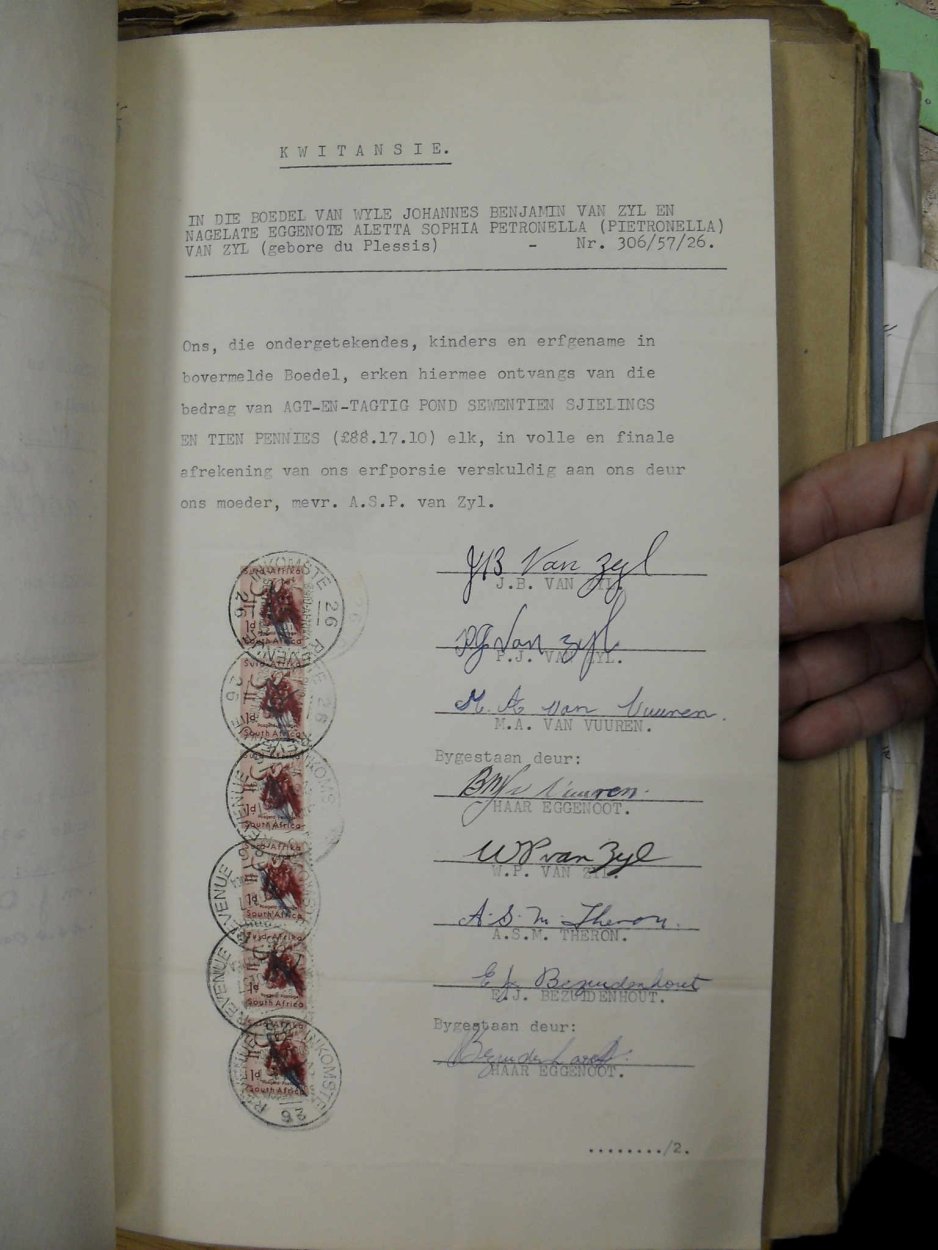 K W I T A N S I E.
IN DIE BOEDEL VAN WYLE JOHANNES BENJAMIN VAN ZYL EN
NAGELATE EGGENOTE ALETTA SOPHIA PETRONELLA (PIETRONELLA)
VAN ZYL (gebore du Plessis) - Nr. 306/57/26.
Ons, die ondergetekendes, kinders en erfgename in
bovermelde Boedel, erken hiermee ontvangs van die
bedrag van AGT-EN-TAGTIG POND SEWENTIEN SJIELINGS
EN TIEN PENNIES (£88.17.10) elk, in volle en finale
afrekening van ons erfporsie verskuldig aan ons deur
ons moeder, mevr. A.S.P. van Zyl.
JB Van Zyl
J.B. VAN ZYL.
PJ Van Zyl
P.J. VAN ZYL.
M. A. van Vuuren.
M.A. VAN VUUREN.
Bygestaan deur:
Vuuren.
HAAR EGGENOOT.
WP van Zyl
W.P. VAN ZYL.
A. S. M. Theron.
A.S.M. THERON.
E J. Bezuidenhout
E.J. BEZUIDENHOUT.
Bygestaan deur:
Bezuidenhout.
HAAR EGGENOOT.
......../2.
Suid-Afrika
1d
South Africa
Suid-Afrika
1d
South Africa
1d
South Africa
1d
South Africa
Suid-Afrika
1d
South Africa
1d
South Africa
INKOMSTE 26 REVENUE 26
26 REVENUE 26
REVENUE INKOMS
REVENUE 26 INKOMSTE
REVENUE
REVENUE INKOMSTE 26